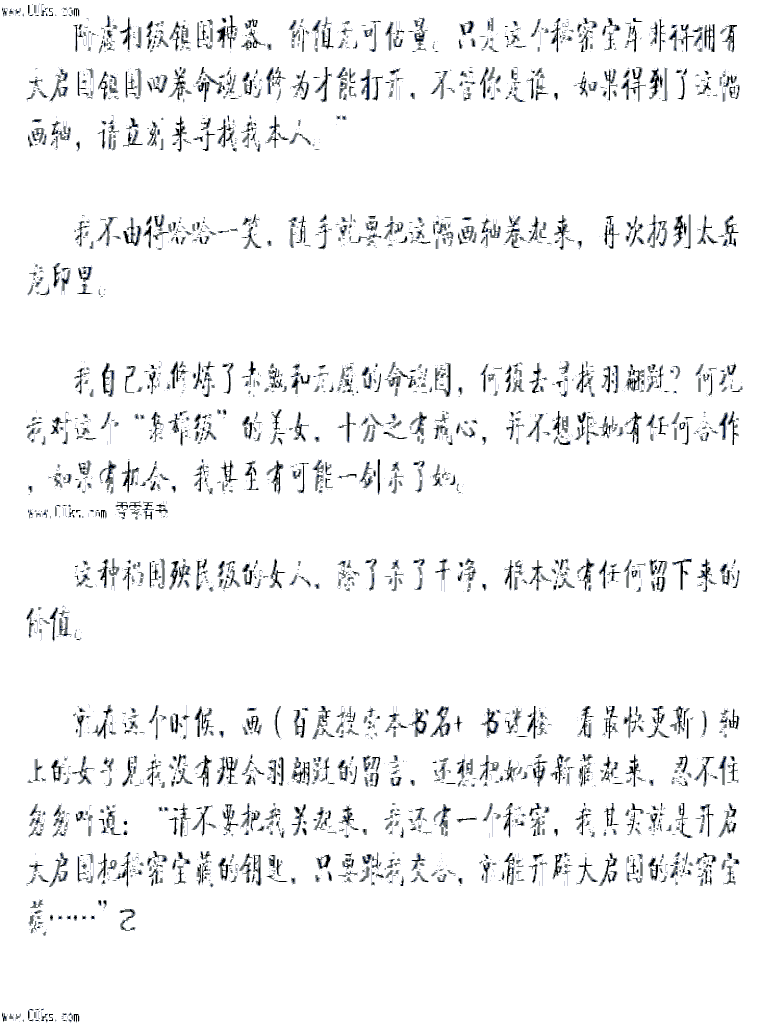 www.00ks.com
阶虚相级镇国神器，价值无可估量。只是这个秘密宝库非得拥有
大启国镇国四卷命魂的修为才能打开，不管你是谁，如果得到了这幅
画轴，请立刻来寻找我本人。”
我不由得哈哈一笑，随手就要把这幅画轴卷起来，再次扔到太岳
龙印里。
我自己就修炼了和无魇的命魂图，何须去寻找羽翩跹？何况
我对这个“枭雄级”的美女，十分之有戒心，并不想跟她有任何合作
，如果有机会，我甚至有可能一剑杀了她。
www.00ks.com 零零看书
这种祸国殃民级的女人，除了杀了干净，根本没有任何留下来的
价值。
就在这个时候，画（百度搜索本书名+ 书迷楼 看最快更新）轴
上的女子见我没有理会羽翩跹的留言，还想把她重新藏起来，忍不住
匆匆叫道：“请不要把我关起来，我还有一个秘密，我其实就是开启
大启国把秘密宝藏的钥匙，只要跟我交合，就能开辟大启国的秘密宝
藏……”
www.00ks.com